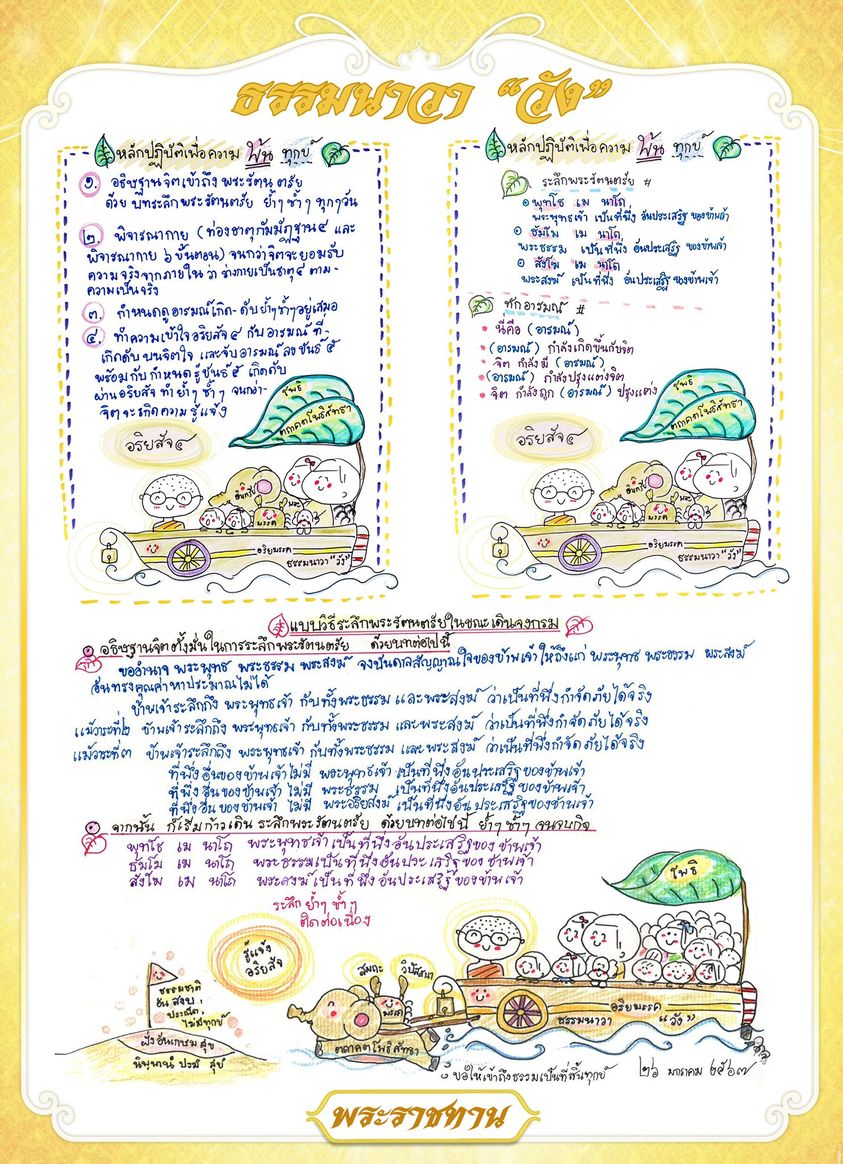 ธรรมนาวา “วัง”
หลักปฏิบัติเพื่อความ พ้น ทุกข์
๑. อธิษฐานจิตเข้าถึง พระรัตนตรัย
ด้วย บทระลึกพระรัตนตรัย ย้ำๆ ซ้ำๆ ทุกๆวัน
๒. พิจารณากาย (ท่องธาตุกัมมัฏฐาน๔ และ
พิจารณากาย ๖ ขั้นตอน) จนกว่าจิตจะยอมรับ
ความจริงจากภายใน ว่า ร่างกายเป็นธาตุ๔ ตาม-
ความเป็นจริง
๓. กำหนดดูอารมณ์เกิด-ดับย้ำๆซ้ำๆอยู่เสมอ
๔. ทำความเข้าใจอริยสัจ๔ กับอารมณ์ ที่-
เกิดดับ บนจิตใจ และจับอารมณ์ลงขันธ์ ๕
พร้อมกับกำหนดรู้ขันธ์๕ เกิดดับ
ผ่านอริยสัจ ทำย้ำๆ ซ้ำๆ จนกว่า-
จิตจะเกิดความรู้แจ้ง
โพธิ
ตถาคตโพธิสัทธา
อริยสัจ๔
มรรค
อริยมรรค
ธรรมนาวา “วัง”
หลักปฏิบัติเพื่อความ พ้น ทุกข์
ระลึกพระรัตนตรัย #
พุทโธ เม นาโถ
พระพุทธเจ้า เป็นที่พึ่ง อันประเสริฐ ของข้าพเจ้า
ธัมโม เม นาโถ
พระธรรม เป็นที่พึ่ง อันประเสริฐ ของข้าพเจ้า
สังโฆ เม นาโถ
พระสงฆ์ เป็นที่พึ่ง อันประเสริฐ ของข้าพเจ้า
ทักอารมณ์ #
นี่คือ (อารมณ์)
(อารมณ์) กำลังเกิดขึ้นกับจิต
จิต กำลังมี (อารมณ์)
(อารมณ์) กำลังปรุงแต่งจิต
จิต กำลังถูก (อารมณ์) ปรุงแต่ง
โพธิ
ตถาคตโพธิสัทธา
อริยสัจ๔
มรรค
อริยมรรค
ธรรมนาวา “วัง”
แบบวิธีระลึกพระรัตนตรัยในขณะเดินจงกรม
อธิษฐานจิตตั้งมั่นในการระลึกพระรัตนตรัย ด้วยบทต่อไปนี้
ขออำนาจ พระพุทธ พระธรรม พระสงฆ์ จงบันดาลสัญญาณใจของข้าพเจ้า ให้ถึงแก่ พระพุทธ พระธรรม พระสงฆ์
อันทรงคุณค่าหาประมาณไม่ได้
ข้าพเจ้าระลึกถึง พระพุทธเจ้า กับทั้งพระธรรม และพระสงฆ์ ว่าเป็นที่พึ่งกำจัดภัยได้จริง
แม้วาระที่๒ ข้าพเจ้าระลึกถึง พระพุทธเจ้า กับทั้งพระธรรม และพระสงฆ์ ว่าเป็นที่พึ่งกำจัดภัยได้จริง
แม้วาระที่๓ ข้าพเจ้าระลึกถึง พระพุทธเจ้า กับทั้งพระธรรม และพระสงฆ์ ว่าเป็นที่พึ่งกำจัดภัยได้จริง
ที่พึ่งอื่นของข้าพเจ้าไม่มี พระพุทธเจ้า เป็นที่พึ่งอันประเสริฐของข้าพเจ้า
ที่พึ่งอื่นของข้าพเจ้า ไม่มี พระธรรม เป็นที่พึ่งอันประเสริฐ ของข้าพเจ้า
ที่พึ่งอื่นของข้าพเจ้า ไม่มี พระอริยสงฆ์ เป็นที่พึ่งอันประเสริฐของข้าพเจ้า
จากนั้น ก็เริ่มก้าวเดิน ระลึกพระรัตนตรัย ด้วยบทต่อไปนี้ ย้ำๆ ซ้ำๆ จนจบกิจ
พุทโธ เม นาโถ พระพุทธเจ้า เป็นที่พึ่งอันประเสริฐของ ข้าพเจ้า
ธัมโม เม นาโถ พระธรรมเป็นที่พึ่งอันประเสริฐของ ข้าพเจ้า
สังโฆ เม นาโถ พระสงฆ์ เป็นที่พึ่งอันประเสริฐ ของข้าพเจ้า
ระลึก ย้ำๆ ซ้ำๆ
ติดต่อเนื่อง
โพธิ
รู้แจ้ง
อริยสัจ
สมถะ วิปัสสนา
มรรค
ธรรมชาติ
อันสงบ,
ประณีต,
ไม่มีทุกข์
ฝั่งอันเกษม สุข
นิพพานํ ปรมํ สุขํ
ตถาคตโพธิสัทธา
อริยมรรค
ธรรมนาวา “วัง”
ขอให้เข้าถึงธรรมเป็นที่สิ้นทุกข์ ๒๖ มกราคม ๒๕๖๗
พระราชทาน